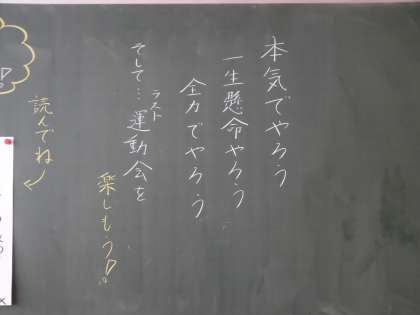 本気でやろう
一生懸命やろう
全力でやろう
そして…ラスト運動会を
楽しもう!
読んでね